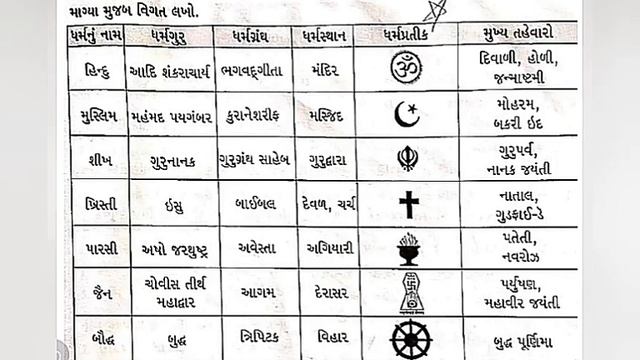 માગ્યા મુજબ વિગત લખો.
ધર્મનું નામ ધર્મગુરુ ધર્મગ્રંથ ધર્મસ્થાન ધર્મપ્રતીક મુખ્ય તહેવારો
હિન્દુ આદિ શંકરાચાર્ય ભગવદ્ગીતા મંદિર દિવાળી, હોળી,
જન્માષ્ટમી
મુસ્લિમ મહંમદ પયગંબર કુરાનેશરીફ મસ્જિદ મોહરમ,
બકરી ઇદ
શીખ ગુરુનાનક ગુરુગ્રંથ સાહેબ ગુરુદ્વારા ગુરુપર્વ,
નાનક જયંતી
ખ્રિસ્તી ઇસુ બાઈબલ દેવળ, ચર્ચ નાતાલ,
ગુડફ્રાઈ-ડે
પારસી અષો જરથુષ્ટ્ર અવેસ્તા અગિયારી પતેતી,
નવરોઝ
જૈન ચોવીસ તીર્થ આગમ દેરાસર પર્યુષણ,
મહાદ્વાર મહાવીર જયંતી
બૌદ્ધ બુદ્ધ ત્રિપિટક વિહાર બુદ્ધ પૂર્ણિમા